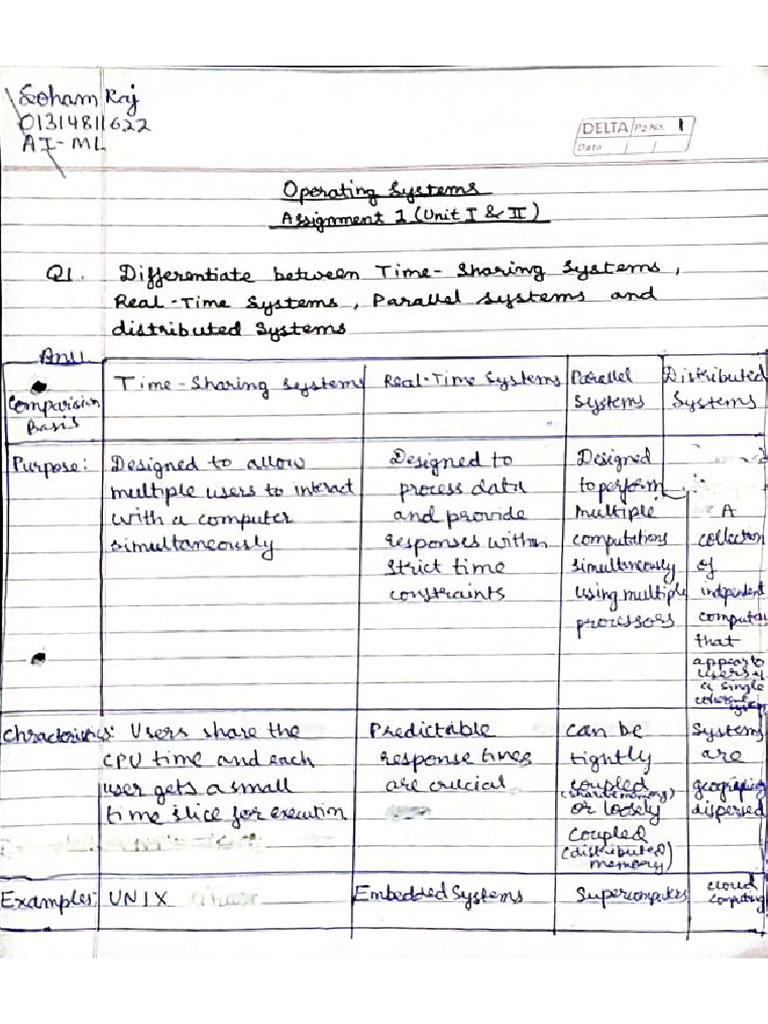 Soham Raj
01314811622
AI-ML
DELTA Pg No. 1
Date
Operating Systems
Assignment 1 (Unit I & II)
Q1. Differentiate between Time-Sharing Systems,
Real-Time Systems, Parallel Systems and
distributed Systems
Ans1
Comparision
Basis
Time-Sharing Systems
Real-Time Systems
Parallel
Systems
Distributed
Systems
Purpose:
Designed to allow
multiple users to interact
with a computer
simultaneously
Designed to
process data
and provide
responses within
strict time
constraints
Designed
to perform
multiple
computations
simultaneously
using multiple
processors
A
collection
of
independent
computers
that
appear to
users as
a single
coherent
system
Chracterictics:
Users share the
CPU time and each
user gets a small
time slice for execution
Predictable
response times
are crucial
can be
tightly
coupled
(shared memory)
or loosely
coupled
(distributed
memory)
Systems
are
dispersed
Examples:
UNIX
Embedded Systems
Supercomputers
cloud
computing